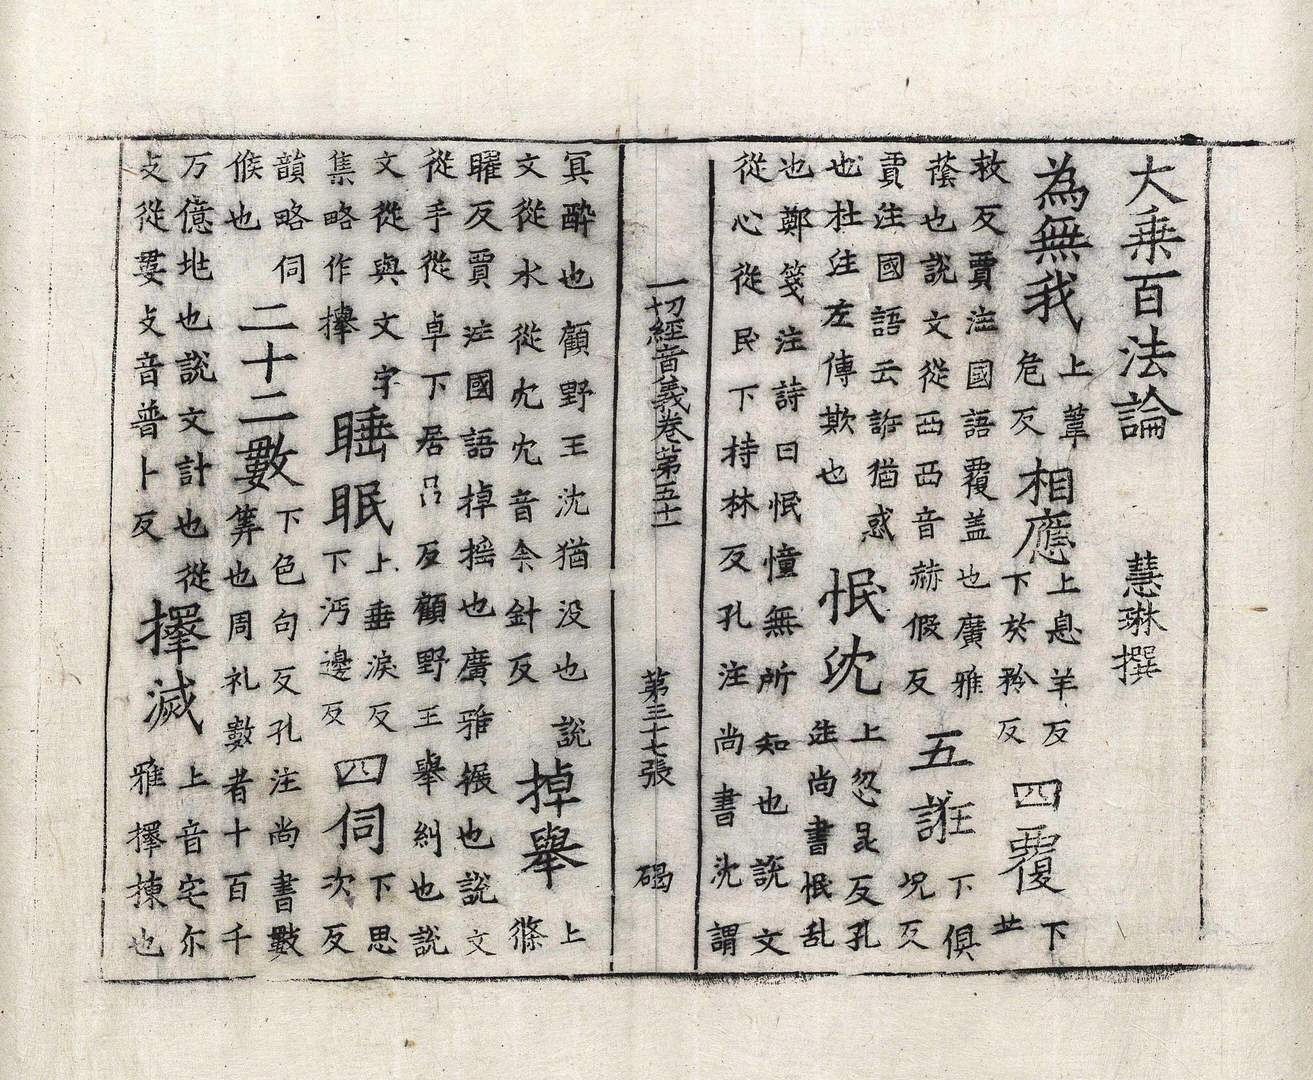 大乗百法論 慧琳撰
為無我
上葦
危反
相應
上息羊反
下於矜反
四覆
下
芳
救反賈注國語覆盖也廣雅
蔭也說文從襾襾音赫假反
五誑
下俱
况反
賈注國語云誑猶惑
也杜注左傳欺也
怋沈
上忽昆反孔
注尚書怋乱
也鄭箋注詩曰怋憧無所知也說文
從心從民下持林反孔注尚書沈謂
一切經音義卷第五十一 第三十七張 碣
冥醉也顧野王沈猶没也說
文從水從冘冘音余針反
掉舉
上
條
曜反賈注國語掉摇也廣雅輾也說文
從手從卓下居吕反顧野王舉糾也說
文從與文字
集略作擧
睡眠
上垂淚反
下沔邊反
四伺
下思
次反
韻略伺
候也
二十二數
下色句反孔注尚書數
筭也周礼數者十百千
万億地也說文計也從
攴從婁攴音普卜反
擇滅
上音宅尔
雅擇揀也